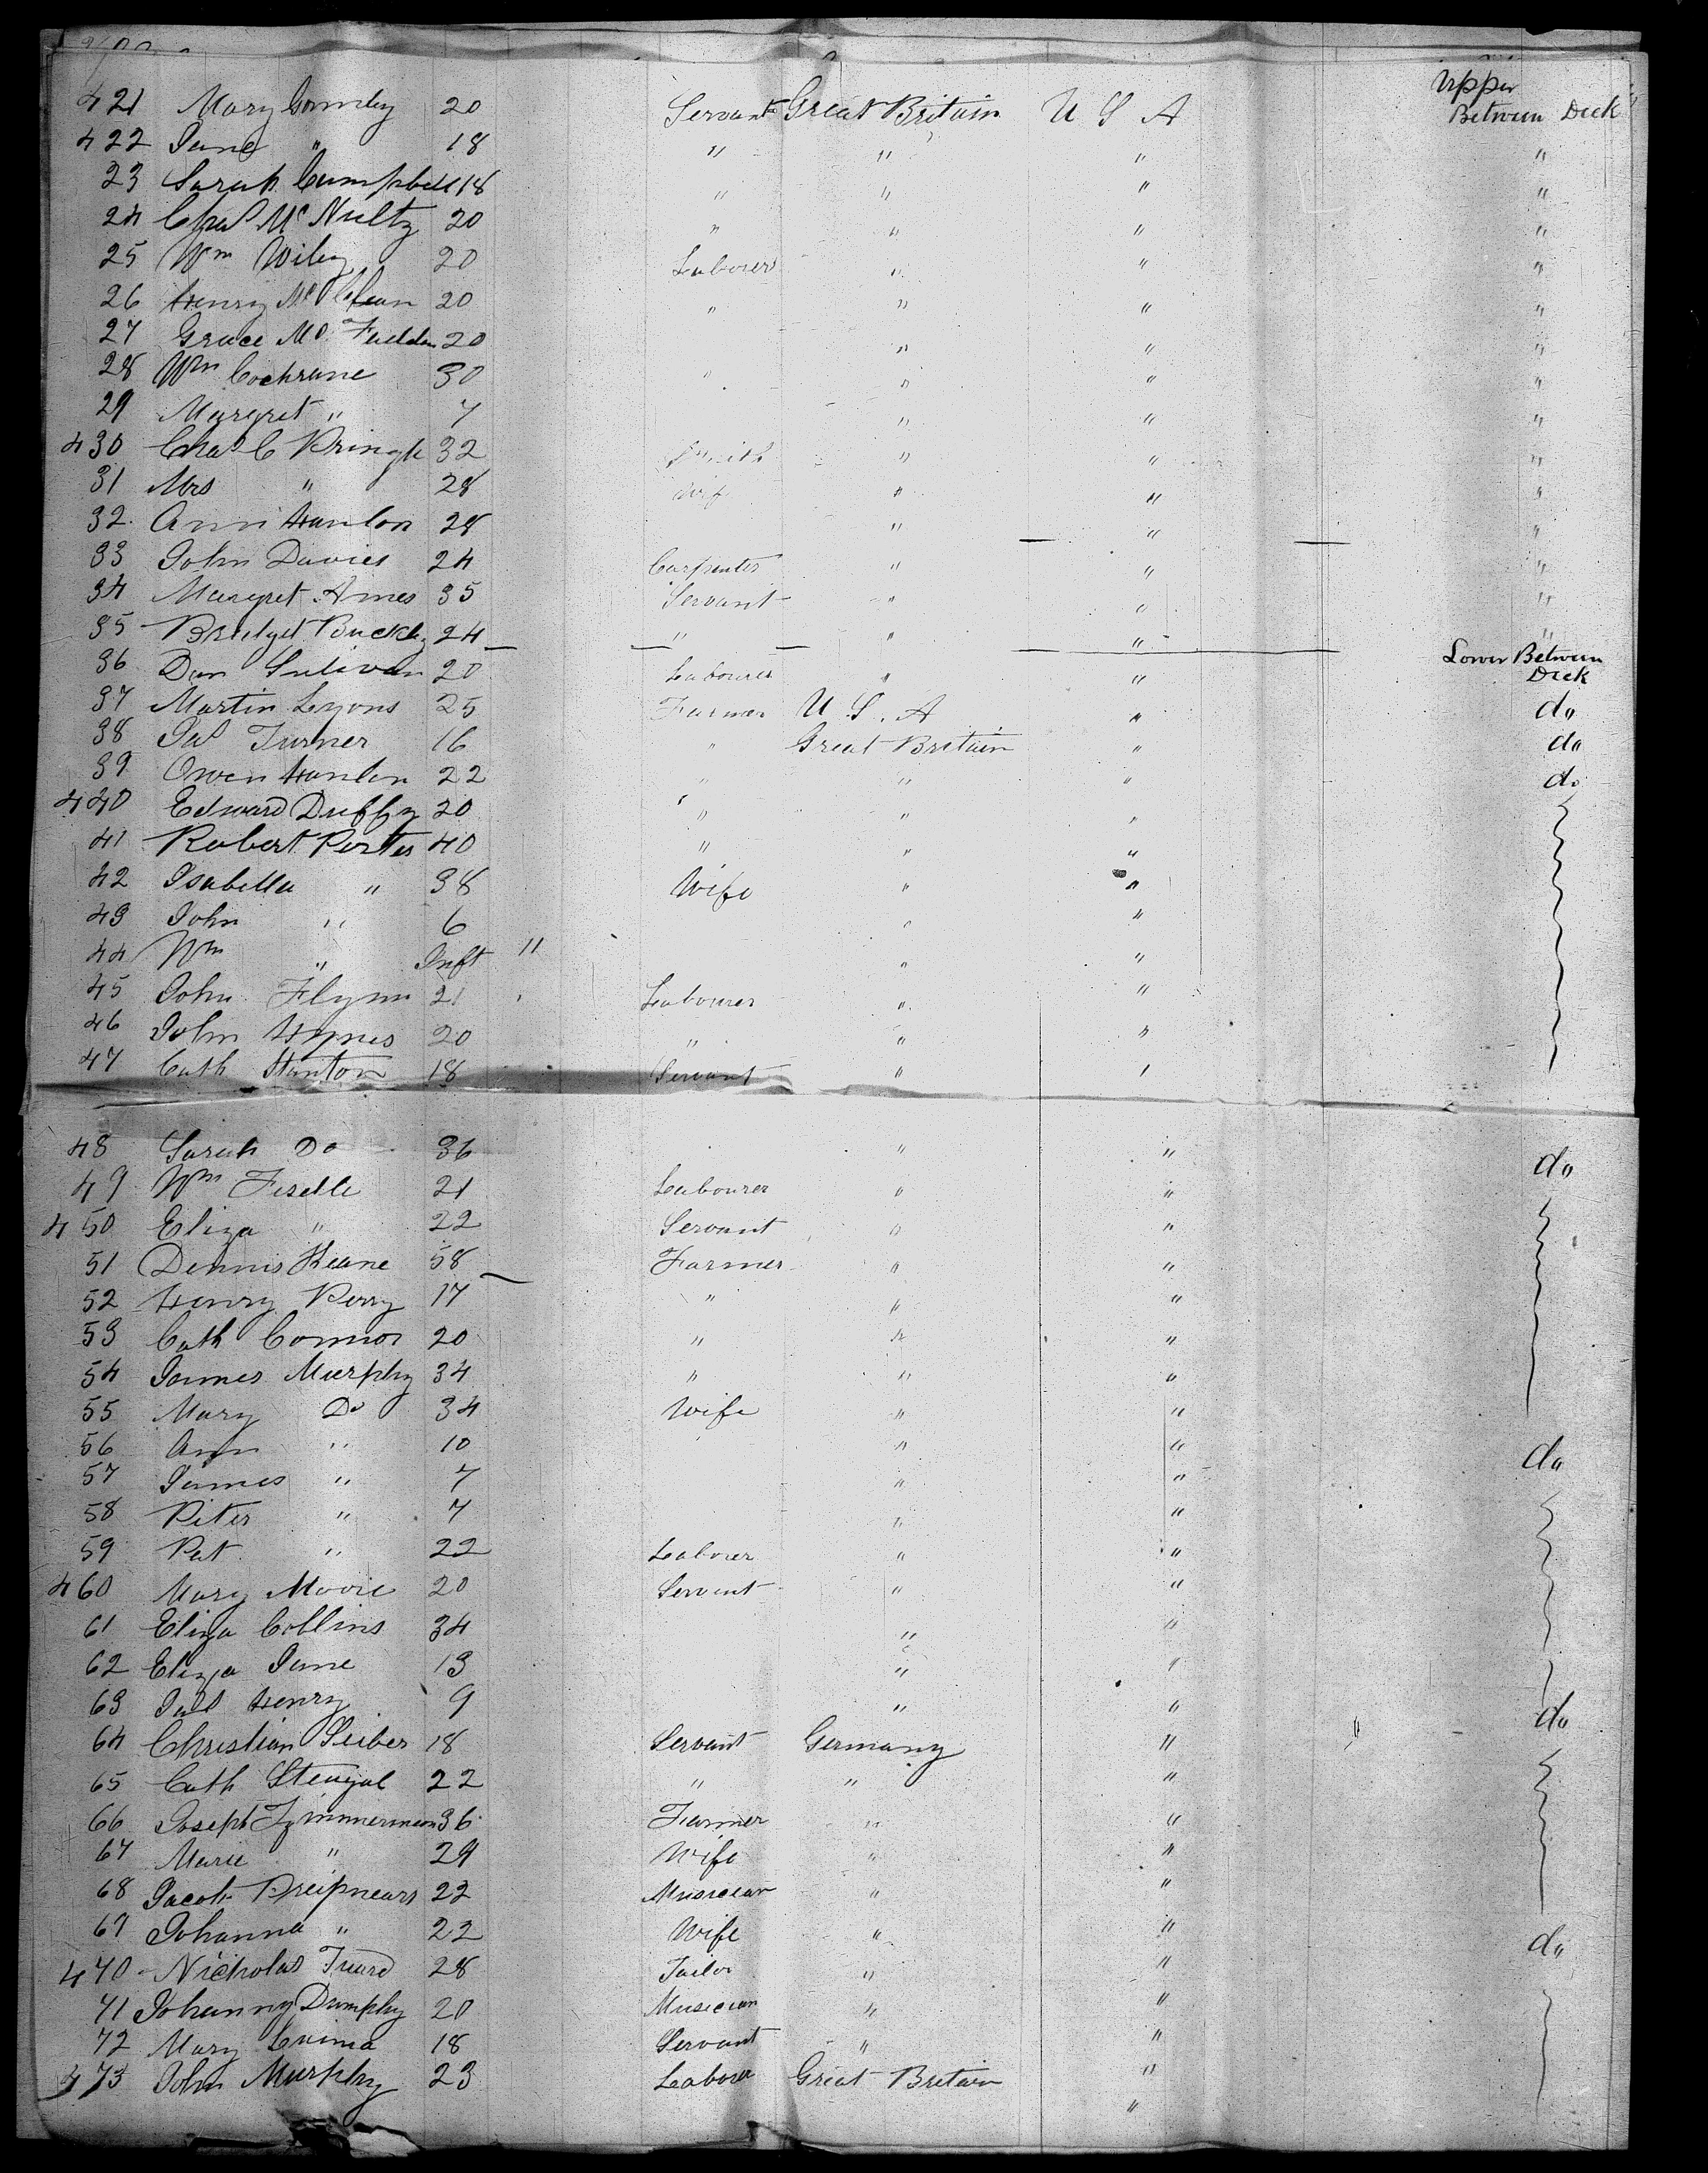 Upper
421 Mary Gormley 20 Servant Great Britain U S A Between Deck
422 Jane " 18 " " " "
23 Sarah Campbell 18 " " " "
24 Chas Mc Nultz 20 " " " "
25 Wm Wiley 20 Labourer " " "
26 Henry Mc Clean 20 " " " "
27 Grace Mc Fadden 20 " " "
28 Wm Cochrane 30 " " " "
29 Margret " 7 " " "
430 Chas C Pringle 32 Smith " " "
31 Mrs " 28 Wife " " "
32 Ann Hanlon 28 " " "
33 John Davies 24 Carpenter " " "
34 Margret Ames 35 Servant " " "
35 Bridget Buckley 24 " " " "
36 Dan Sulivan 20 Labourer " " Lower Between Deck
37 Martin Lyons 25 Farmer U. S. A " do
38 Jas Turner 16 " Great Britain " do
39 Owen Hanlon 22 " " " do
440 Edward Duffy 20 " " "
41 Robert Porter 40 " " "
42 Isabella " 38 Wife " "
43 John " 6 " "
44 Wm " Inft 11 " "
45 John Flynn 21 Labourer " "
46 John Hynes 20 " " "
47 Cath Stanton 18 Servant " "
48 Sarah Do 36 " " do
49 Wm 21 Labourer " "
450 Eliza " 22 Servant " "
51 Dennis Keane 58 Farmer " "
52 Henry Perry 17 " " "
53 Cath Connor 20 " " "
54 James Murphy 34 " " "
55 Mary Do 34 Wife " "
56 Ann " 10 " " do
57 James " 7 " "
58 Peter " 7 " "
59 Pat " 22 Laborer " "
460 Mary Moore 20 Servant " "
61 Eliza Collins 34 " "
62 Eliza Jane 13 " "
63 Jas Henry 9 " " do
64 Christian Seiber 18 Servant Germany "
65 Cath Stengal 22 " " "
66 Joseph Zimmerman 36 Farmer " "
67 Marie " 29 Wife " "
68 Jacob 22 Musician " "
69 Johanna " 22 Wife " " do
470 Nicholas 28 Tailor " "
71 Johanny Dumphy 20 Musician " "
72 Mary 18 Servant " "
473 John Murphy 23 Labour Great Britain "
"